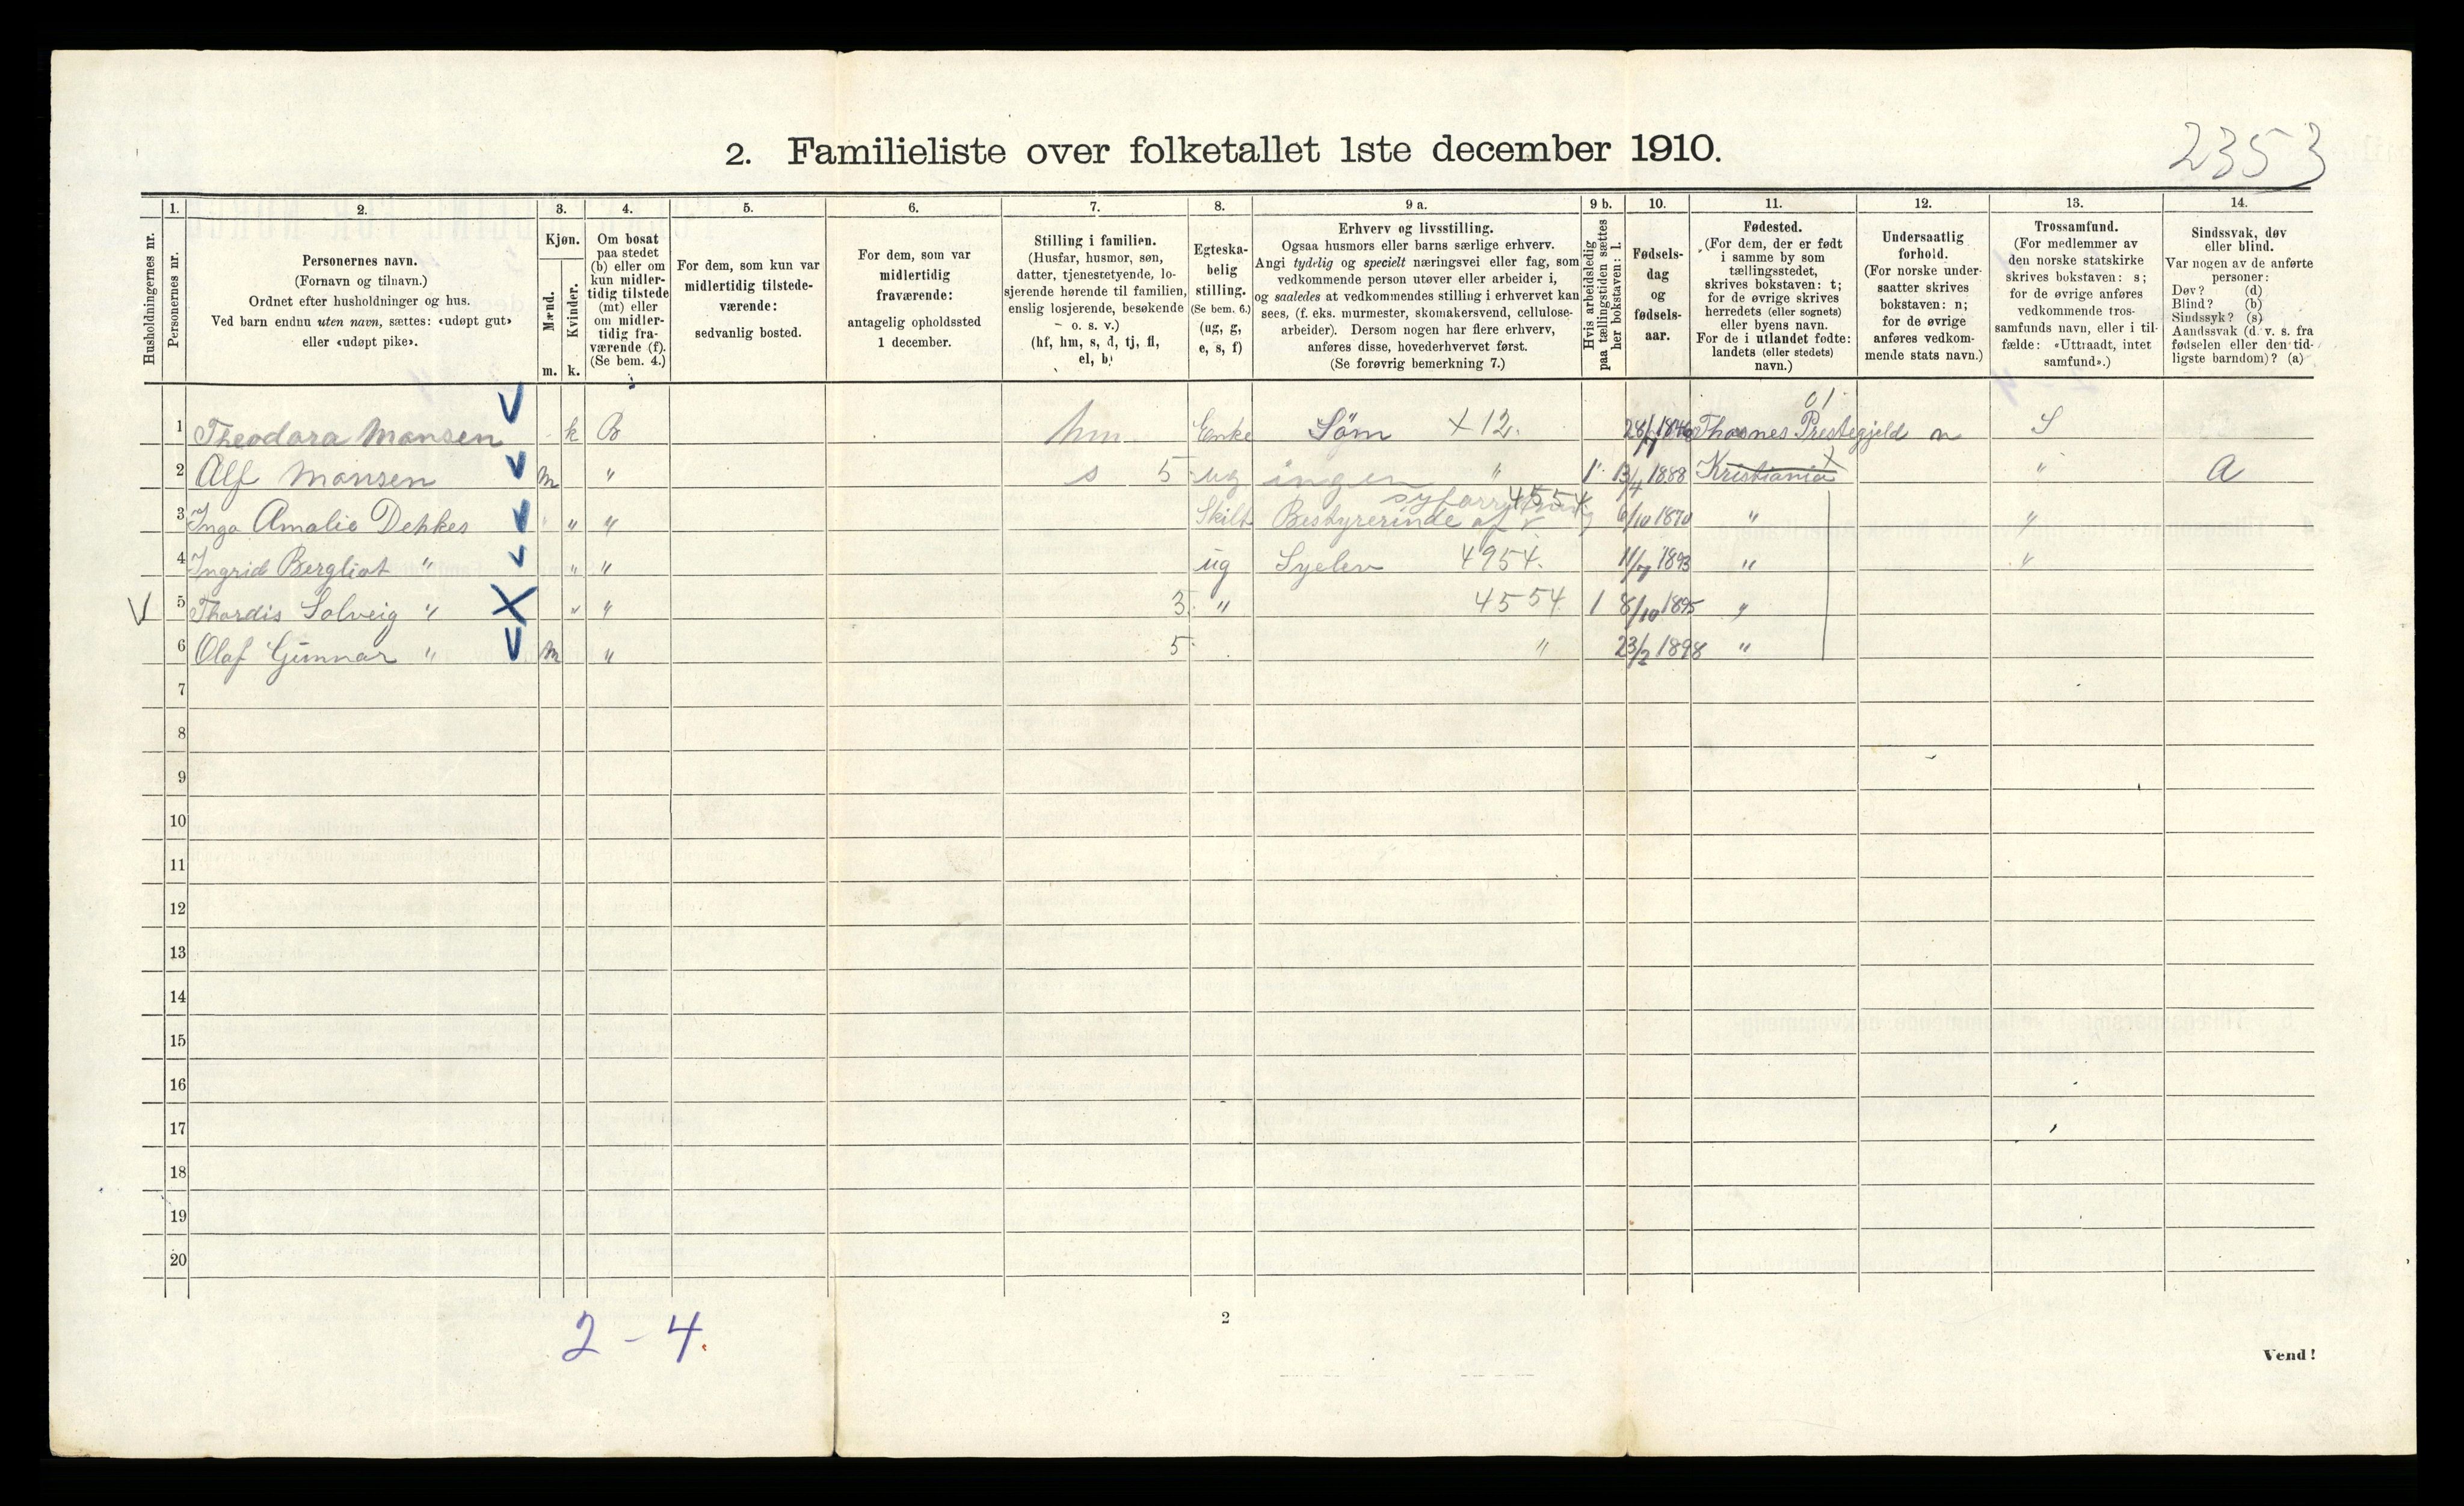 2353
2. Familieliste over folketallet 1ste december 1910.
Husholdningernes nr.
1. Personernes nr.
2. Personernes navn.
(Fornavn og tilnavn.)
Ordnet efter husholdninger og hus.
Ved barn endnu uten navn, sættes: «udøpt gut»
eller «udøpt pike».
3. Kjøn.
Mænd. Kvinder.
m. k.
4. Om bosat
paa stedet
(b) eller om
kun midler-
tidig tilstede
(mt) eller
om midler-
tidig fra-
værende (f).
(Se bem. 4.)
5. For dem, som kun var
midlertidig tilstede-
værende:
sedvanlig bosted.
6. For dem, som var
midlertidig
fraværende:
antagelig opholdssted
1 december.
7. Stilling i familien.
(Husfar, husmor, søn,
datter, tjenestetyende, lo-
sjerende hørende til familien,
enslig losjerende, besøkende
o. s. v.)
(hf, hm, s, d, tj, fl,
el, b)
8. Egteska-
belig
stilling.
(Se bem. 6.)
(ug, g,
e, s, f)
9 a. Erhverv og livsstilling.
Ogsaa husmors eller barns særlige erhverv.
Angi tydelig og specielt næringsvei eller fag, som
vedkommende person utøver eller arbeider i,
og saaledes at vedkommendes stilling i erhvervet kan
sees, (f. eks. murmester, skomakersvend, cellulose-
arbeider). Dersom nogen har flere erhverv,
anføres disse, hovederhvervet først.
(Se forøvrig bemerkning 7.)
9 b. Hvis arbeidsledig
paa tællingstiden sættes
her bokstaven: l.
10. Fødsels-
dag
og
fødsels-
aar.
11. Fødested.
(For dem, der er født
i samme by som
tællingsstedet,
skrives bokstaven: t;
for de øvrige skrives
herredets (eller sognets)
eller byens navn.
For de i utlandet fødte:
landets (eller stedets)
navn.)
12. Undersaatlig
forhold.
(For norske under-
saatter skrives
bokstaven: n;
for de øvrige
anføres vedkom-
mende stats navn.)
13. Trossamfund.
(For medlemmer av
den norske statskirke
skrives bokstaven: s;
for de øvrige anføres
vedkommende tros-
samfunds navn, eller i til-
fælde: «Uttraadt, intet
samfund».)
14. Sindssvak, døv
eller blind.
Var nogen av de anførte
personer:
Døv? (d)
Blind? (b)
Sindssyk? (s)
Aandssvak (d. v. s. fra
fødselen eller den tid-
ligste barndom)? (a)
01
1 Theodora Monsen k B hm Enke Söm X 12. Prestegjeld n S
2 Alf Monsen m " s 5 ug ingen " 1 13/4 1888 Kristiania " A
4554
3 Inga Amalie Dehkes " " Skilt Bestyrerinde af 6/10 1870 " "
4 Ingrid Bergliot " " " ug Syelev 4954. 11/7 1893 " "
5 Thordis Solveig " " " 3. " 4554 1 8/10 1895 "
6 Olaf Gunnar " m " 5 " 23/2 1898 "
7
8
9
10
11
12
13
14
15
16
17
18
19
20
2
2 - 4.
Vend!